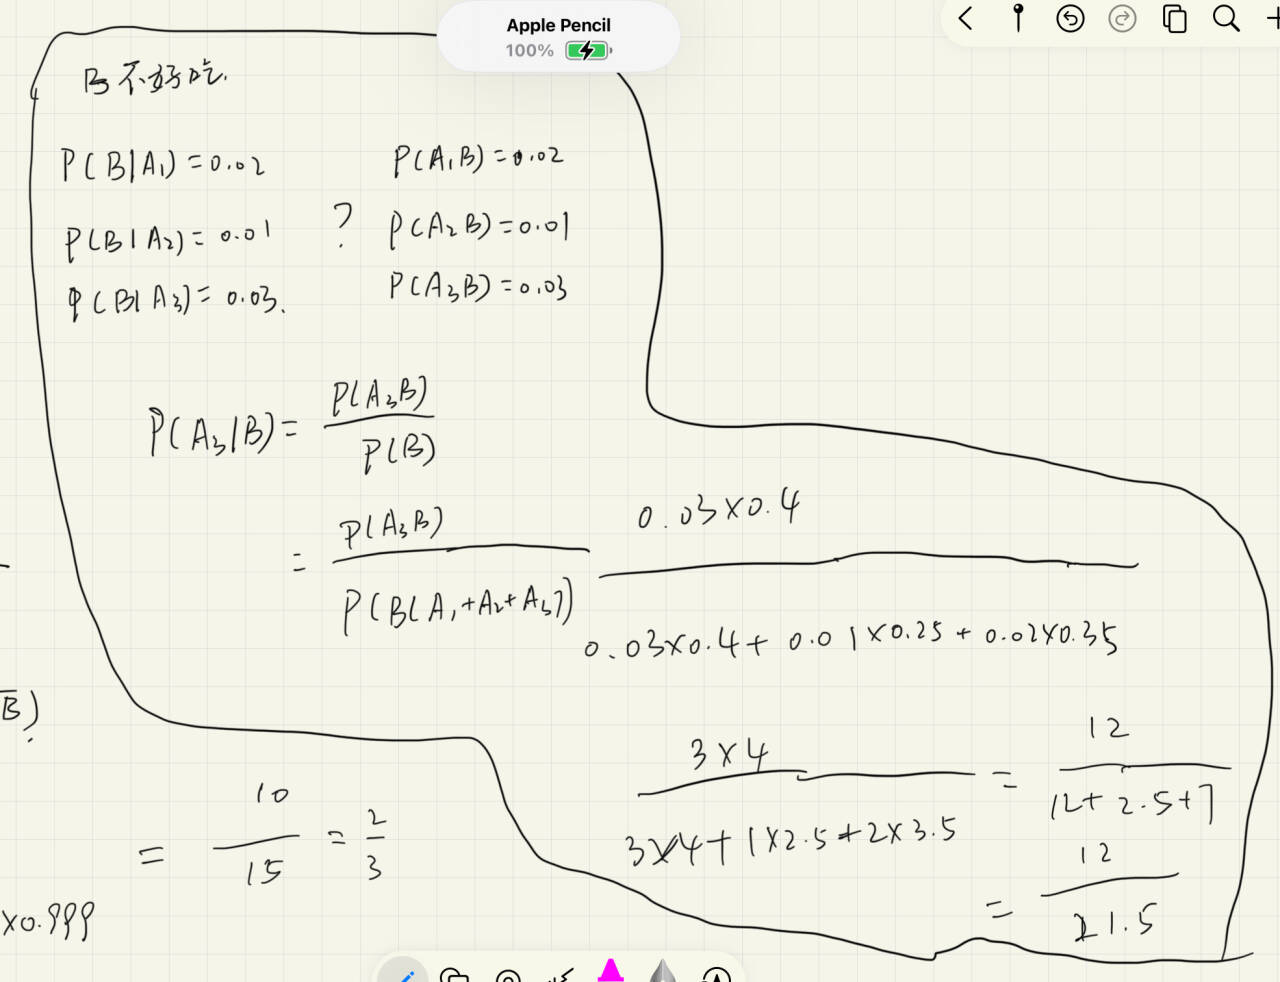 Apple Pencil
100%
B 不好吃.
P(B|A₁)=0.02
P(A₁B)=0.02
P(B|A₂)=0.01
?
P(A₂B)=0.01
P(B|A₃)=0.03.
P(A₃B)=0.03
P(A₃|B)=
P(A₃B)
P(B)
=
P(A₃B)
P(B(A₁+A₂+A₃))
0.03×0.4
0.03×0.4+0.01×0.25+0.02×0.35
B̅)
?
3×4
3×4+1×2.5+2×3.5
=
12
12+2.5+7
=
12
21.5
=
10
15
=
2
3
×0.999